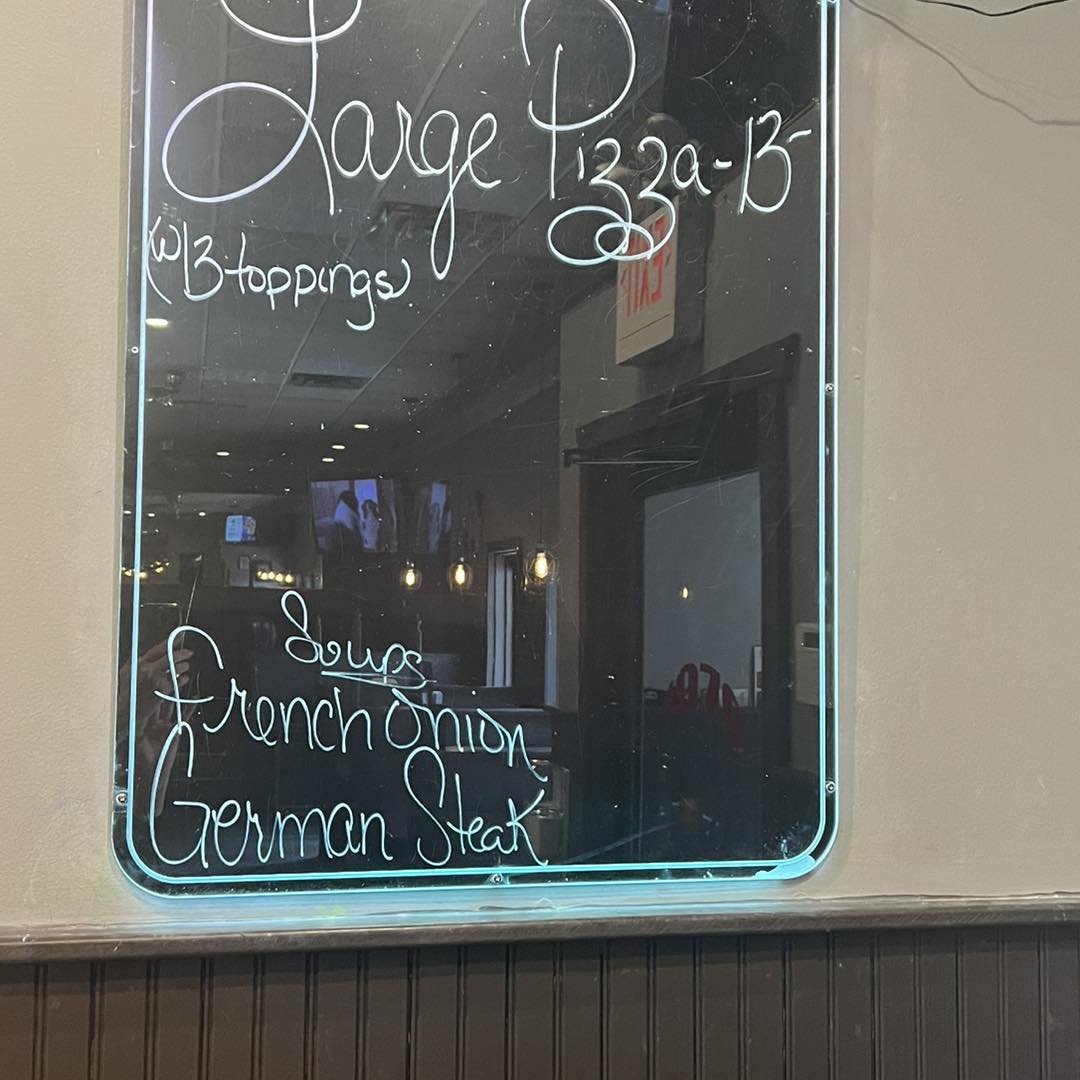 Large Pizza - 13-
(w/3 toppings)
EXIT
Soups
French Onion
German Steak